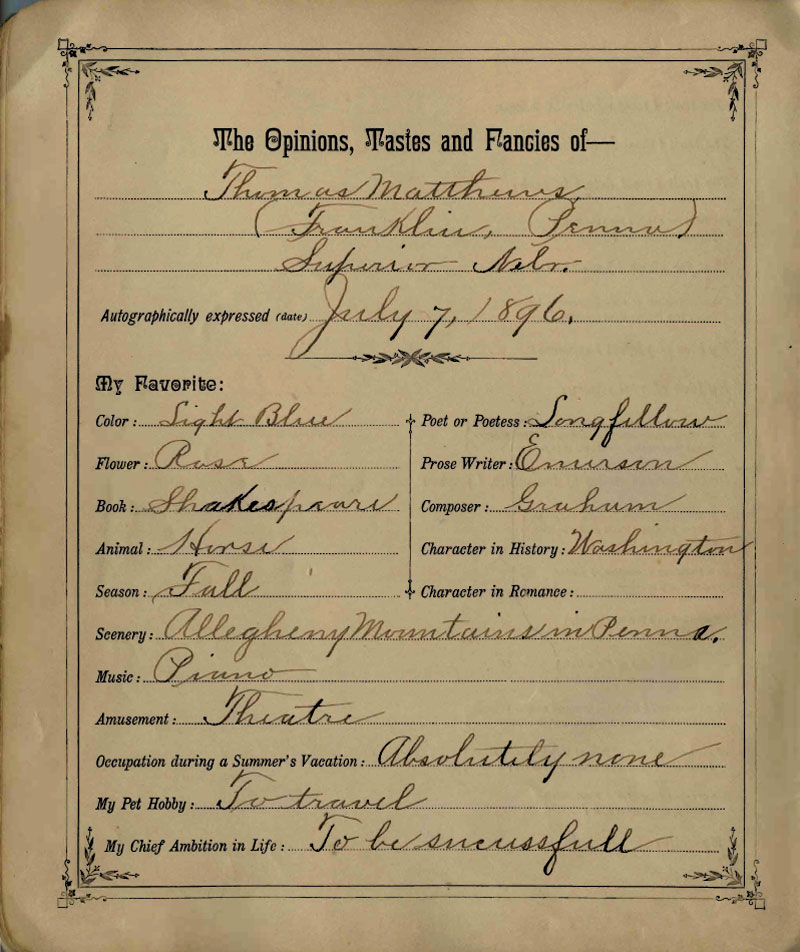 The Opinions, Tastes and Fancies of—
Thomas Matthews
(Franklin, Penna)
Superior Nebr.
Autographically expressed (date) July 7, 1896.
My Favorite:
Color: Light Blue
Flower: Rose
Book: Shakespeare
Animal: Horse
Season: Fall
Poet or Poetess: Longfellow
Prose Writer: Emerson
Composer: Graham
Character in History: Washington
Character in Romance:
Scenery: Allegheny Mountains in Penna.
Music: Piano
Amusement: Theatre
Occupation during a Summer's Vacation: Absolutely none
My Pet Hobby: To travel
My Chief Ambition in Life: To be sucussfull